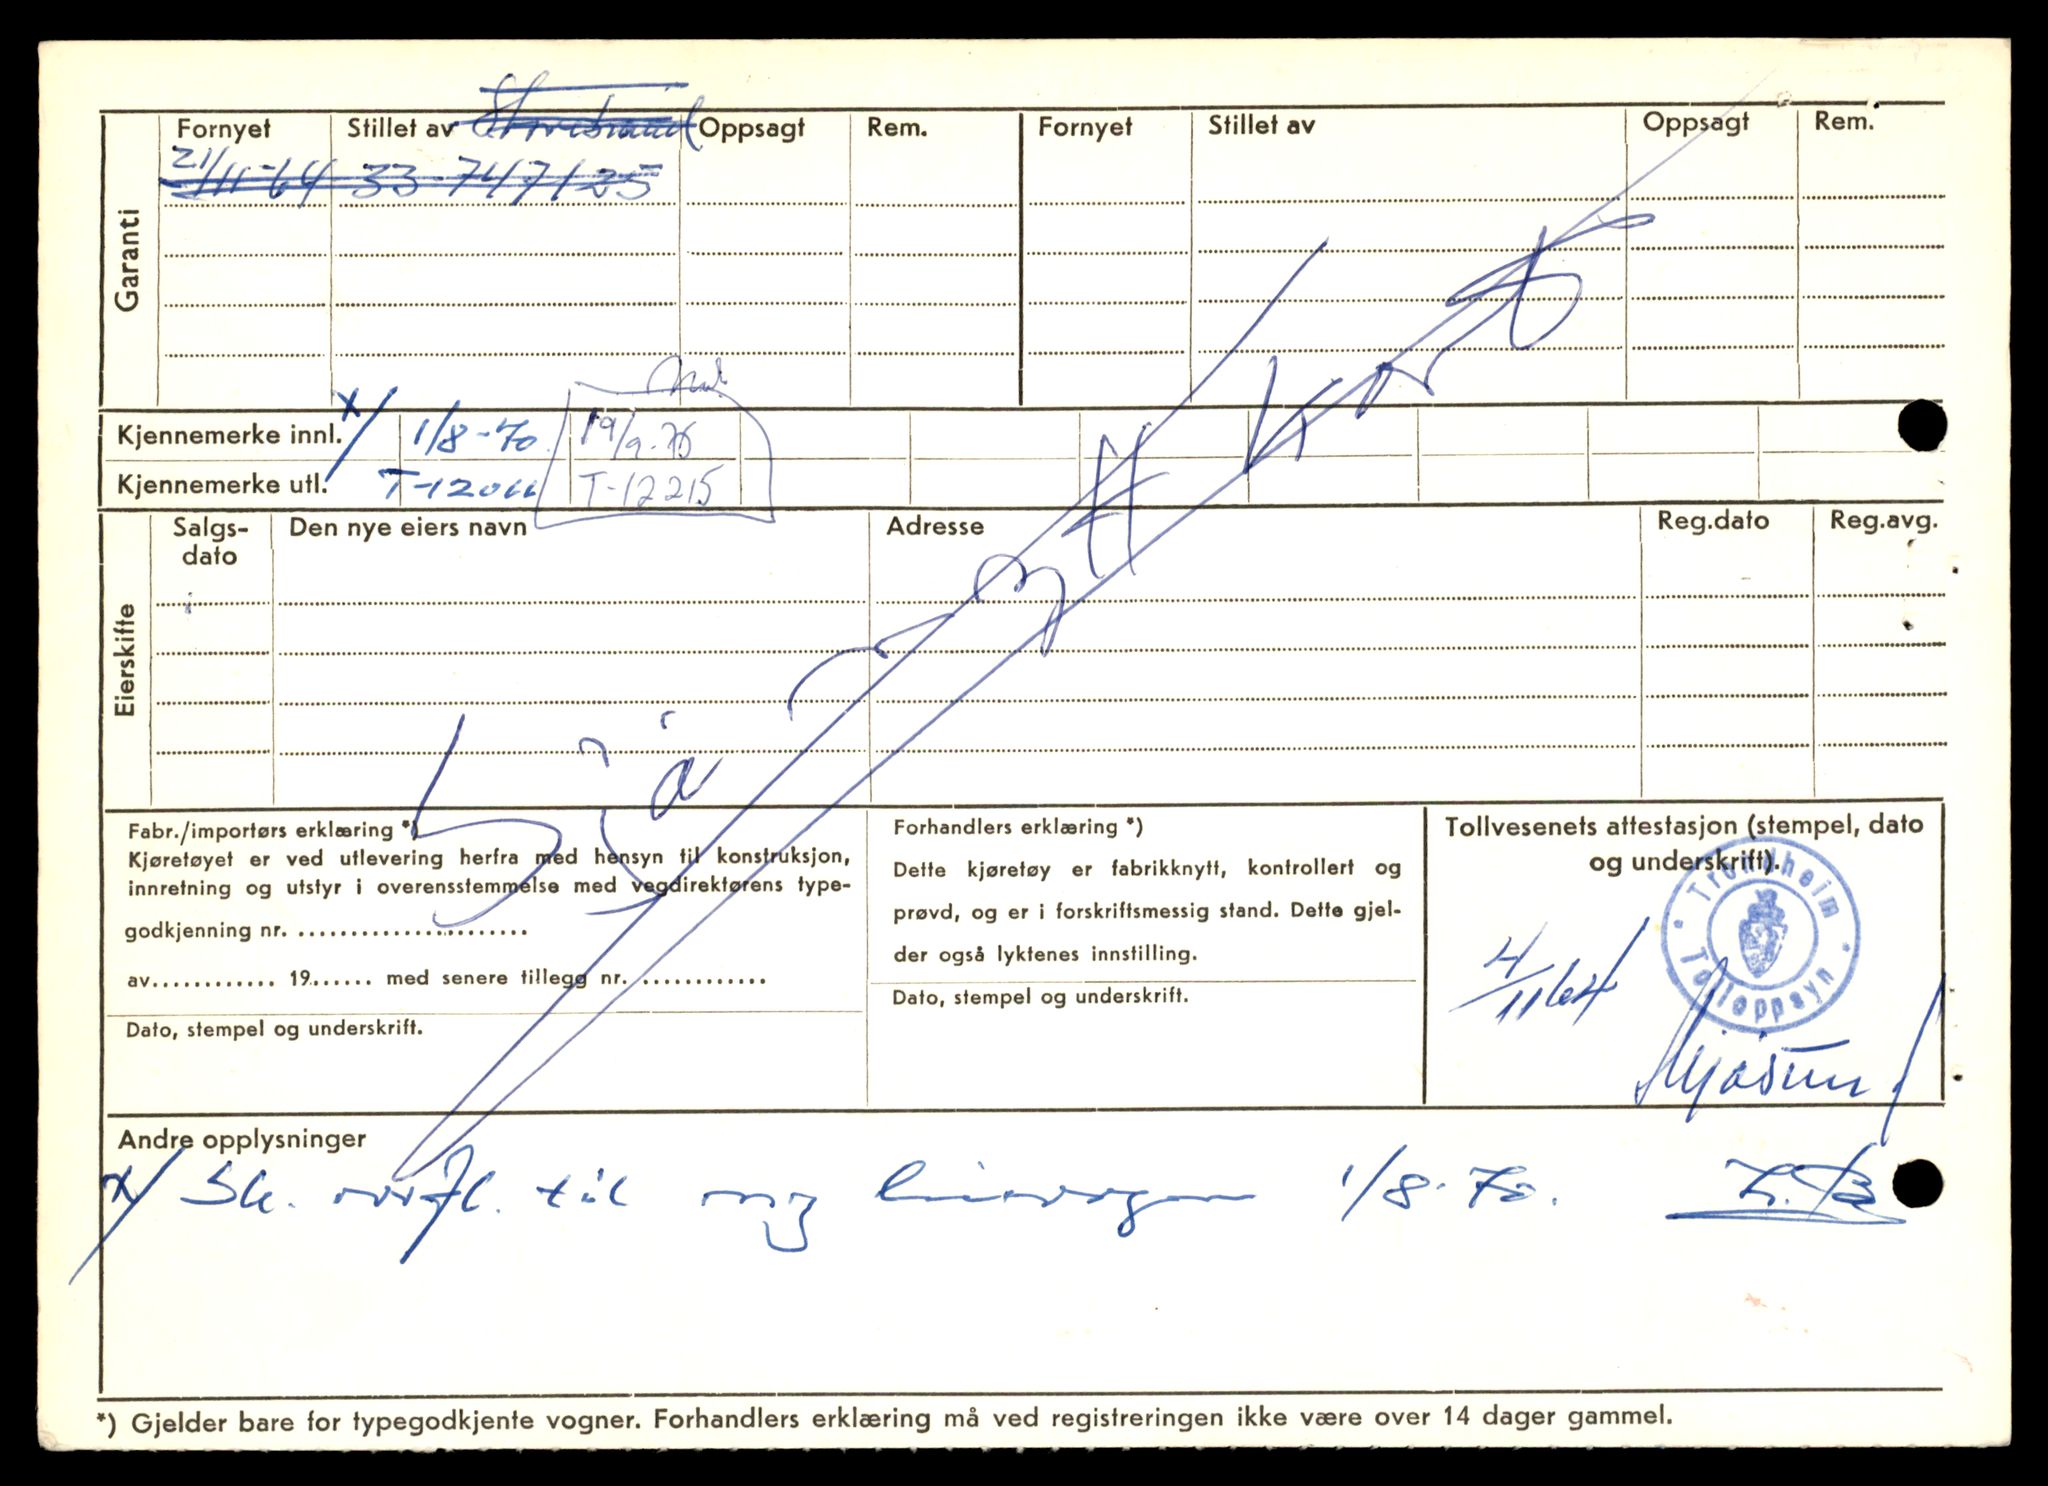 Storebrand
Garanti
Fornyet Stillet av Oppsagt Rem. Fornyet Stillet av Oppsagt Rem.
21/11-64 33-747135
Kjennemerke innl. x/ 1/8-70 19/9-75
Kjennemerke utl. T-12011 T-12215
Eierskifte
Salgs-dato Den nye eiers navn Adresse Reg.dato Reg.avg.
kort
Fabr./importørs erklæring *)
Kjøretøyet er ved utlevering herfra med hensyn til konstruksjon,
innretning og utstyr i overensstemmelse med vegdirektørens type-
godkjenning nr. .......................
av............ 19...... med senere tillegg nr. ............
Dato, stempel og underskrift.
Forhandlers erklæring *)
Dette kjøretøy er fabrikknytt, kontrollert og
prøvd, og er i forskriftsmessig stand. Dette gjel-
der også lyktenes innstilling.
Dato, stempel og underskrift.
Tollvesenets attestasjon (stempel, dato
og underskrift).
Trondheim Tolloppsyn
4/11 64
Andre opplysninger
x/ Sk. overfl. til ny 1/8-70.
*) Gjelder bare for typegodkjente vogner. Forhandlers erklæring må ved registreringen ikke være over 14 dager gammel.